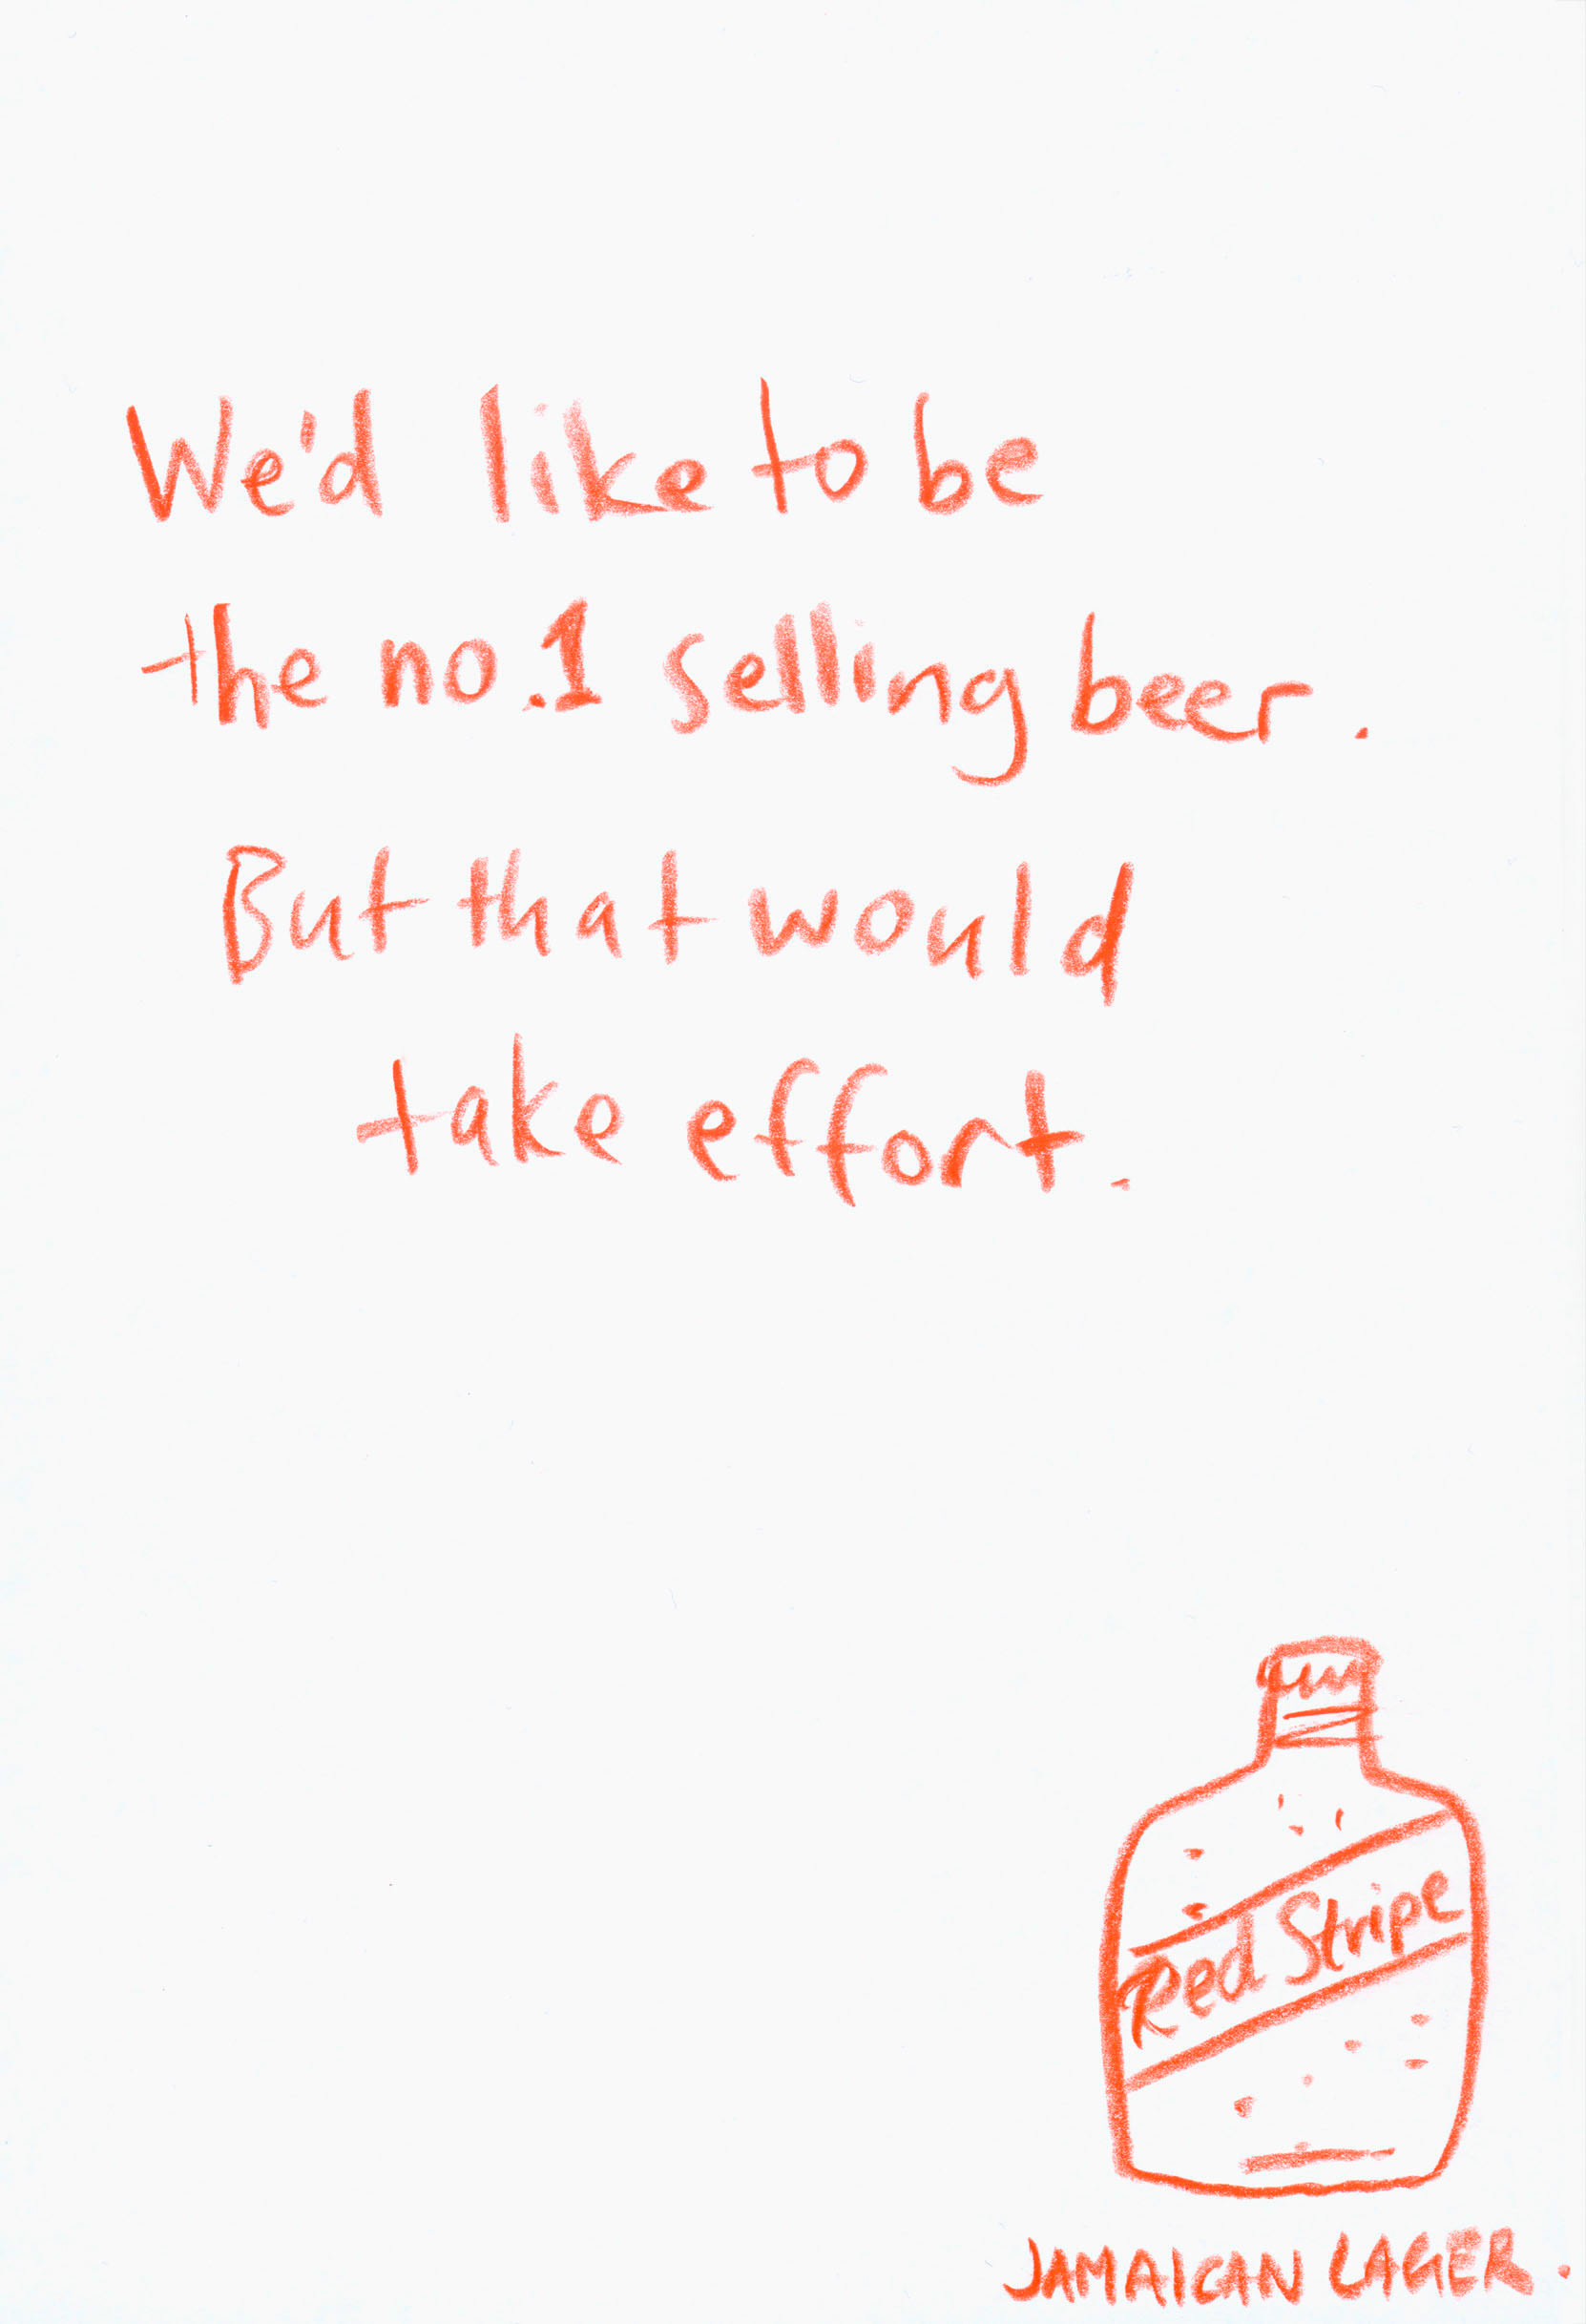 We'd like to be
the no.1 selling beer.
But that would
take effort.
Red Stripe
JAMAICAN LAGER.